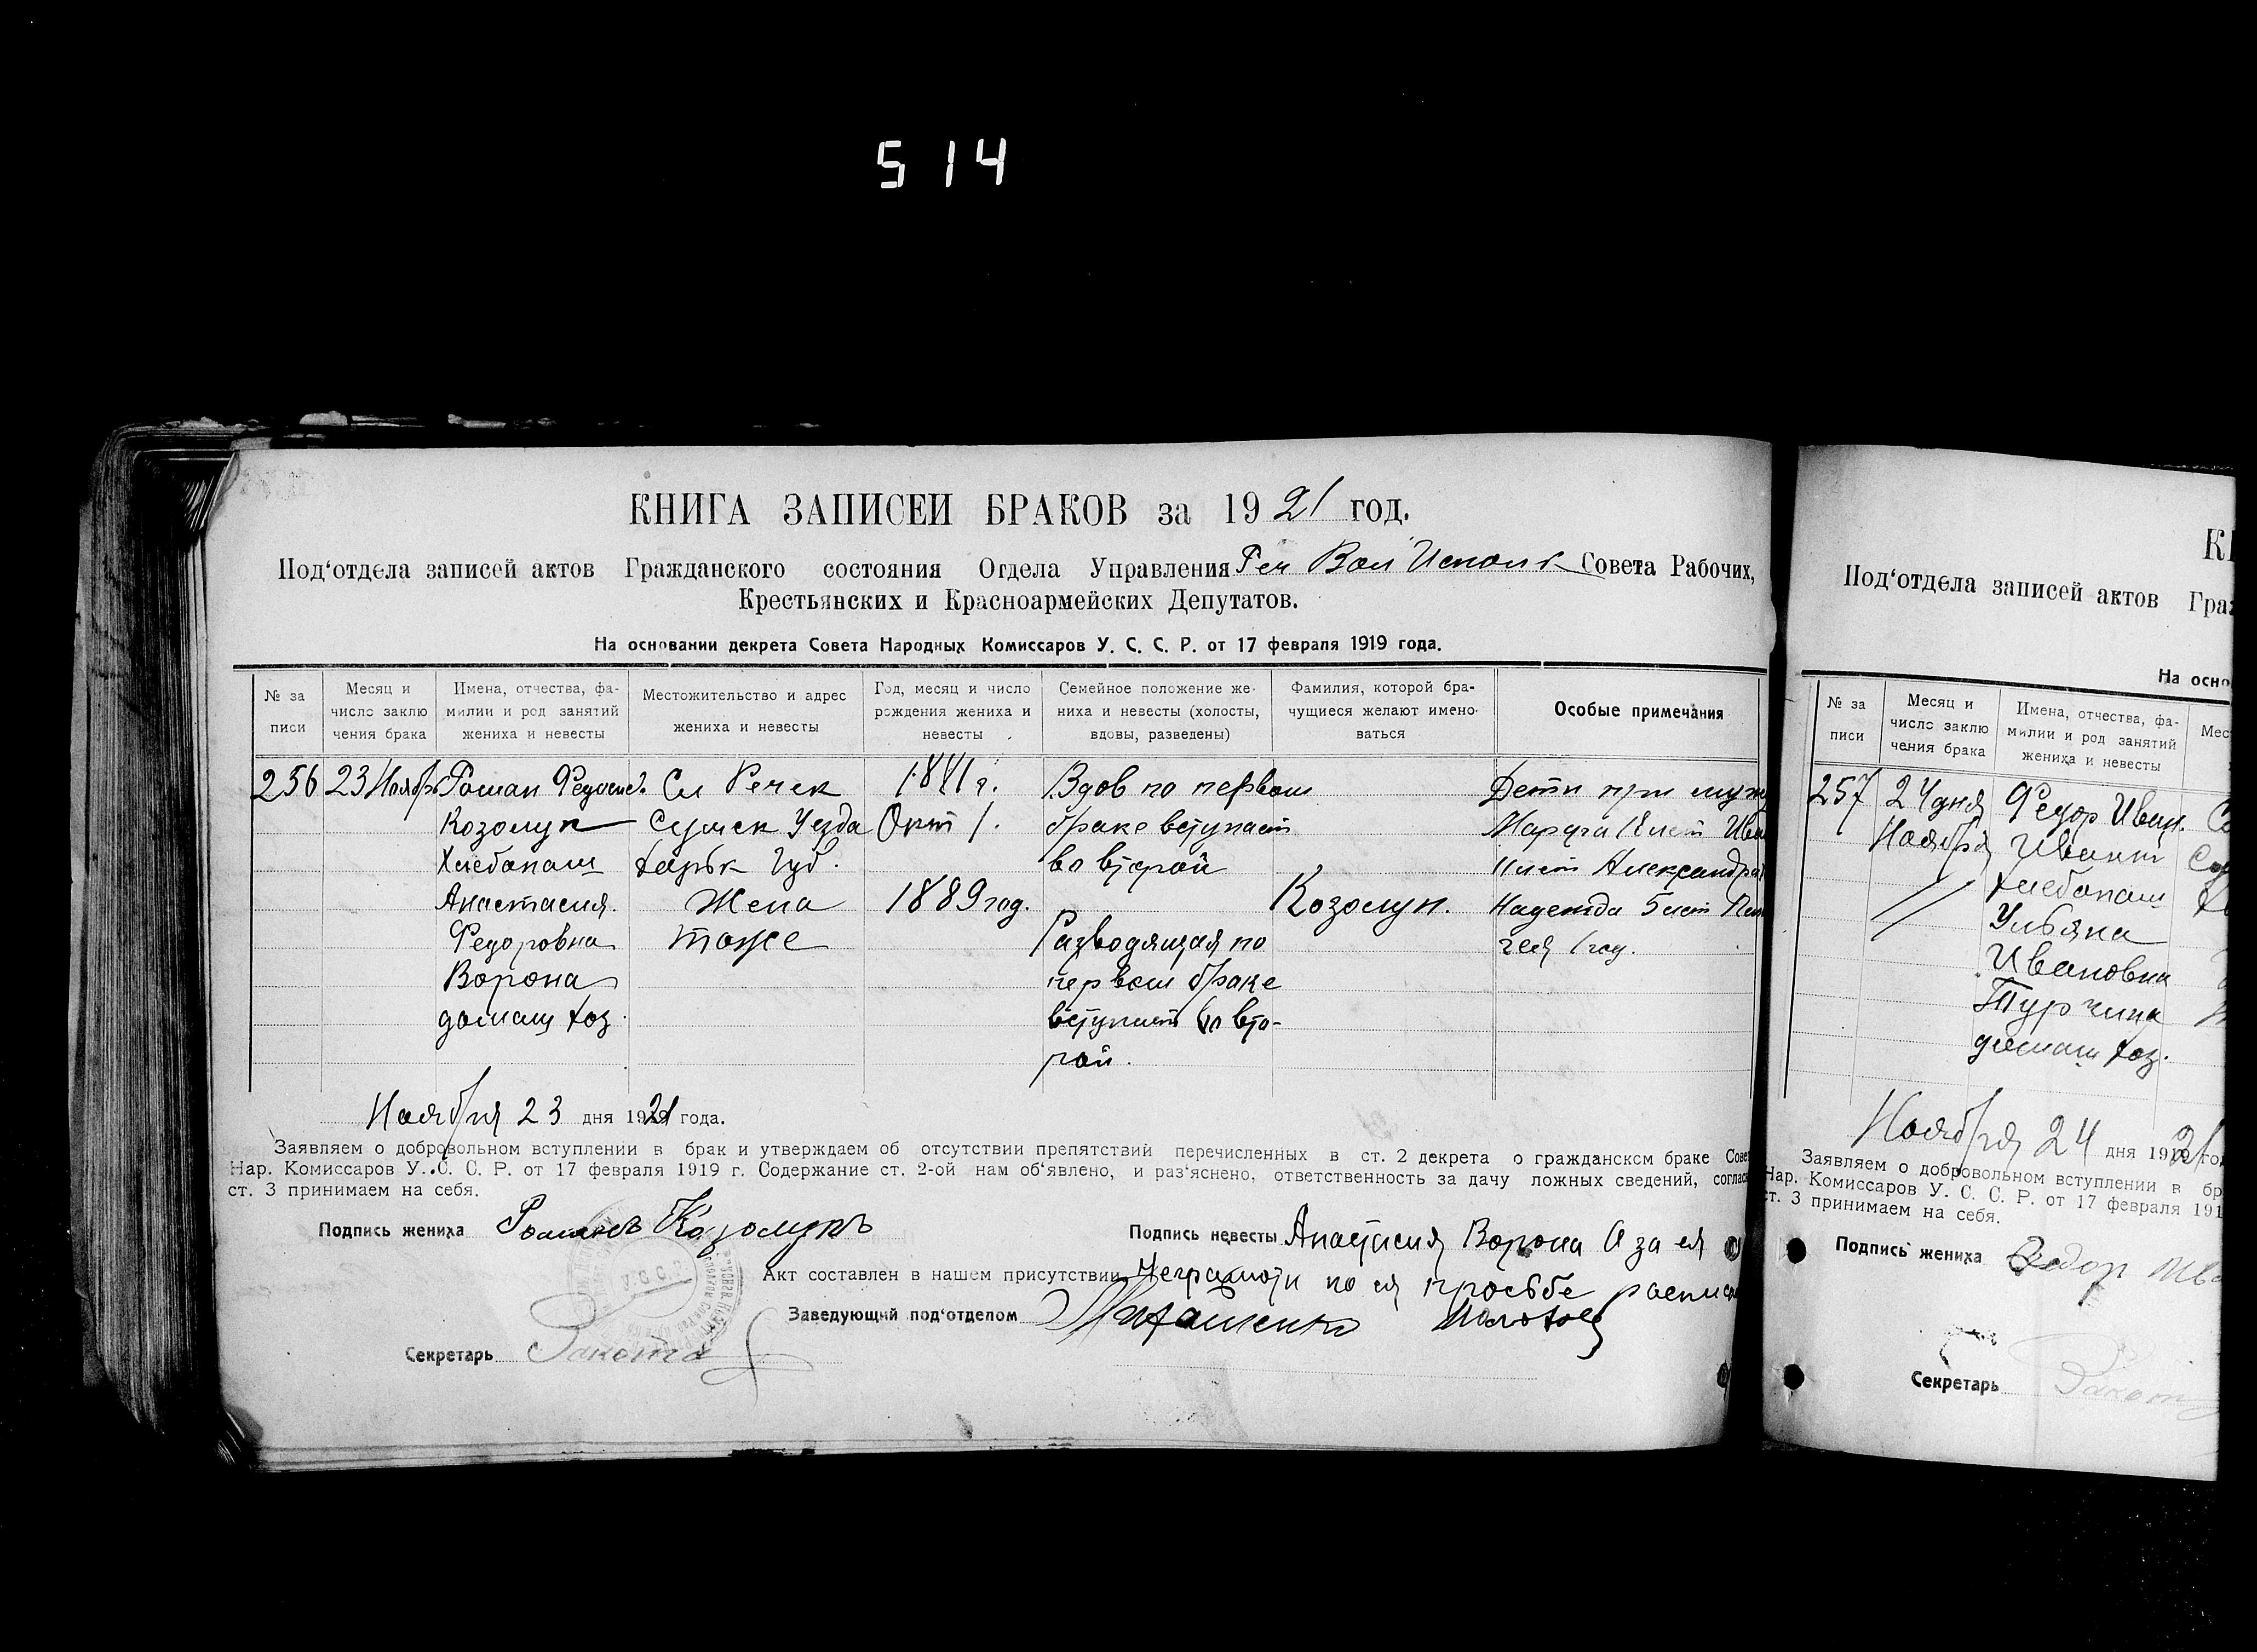 514
КНИГА ЗАПИСЕЙ БРАКОВ за 1921 год.
Под‘отдела записей актов Гражданского состояния Отдела Управления Реч Вол Исполк Совета Рабочих,
Крестьянских и Красноармейских Депутатов.
На основании декрета Совета Народных Комиссаров У. С. С. Р. от 17 февраля 1919 года.
№ за писи
Месяц и число заклю чения брака
Имена, отчества, фа- милии и род занятий жениха и невесты
Местожительство и адрес жениха и невесты
Год, месяц и число рождения жениха и невесты
Семейное положение же- ниха и невесты (холосты, вдовы, разведены)
Фамилия, которой бра- чущиеся желают имено- ваться
Особые примечания
256
23 Ноябр
Роман Федосие.
Козолуп
Хлебопаш
Анастасия
Федоровна
Ворона
домаш хоз.
Сл Речек
Сумск Уезда
Харьк Губ.
Жена
тоже
18 г.
Окт 1.
1889 год.
Вдов по первом
браке вступает
во второй
Разводящая по
первом браке
вступает во вто-
рой.
Козолуп.
Дети при муж
лет Александра
Надежда 5 лет
1 год.
Ноября 23 дня 1921 года.
Заявляем о добровольном вступлении в брак и утверждаем об отсутствии препятствий перечисленных в ст. 2 декрета о гражданском браке Совет
Нар. Комиссаров У. С. С. Р. от 17 февраля 1919 г. Содержание ст. 2-ой нам об‘явлено, и раз‘яснено, ответственность за дачу ложных сведений, соглас
ст. 3 принимаем на себя.
Подпись жениха Романъ Козолупъ
Подпись невесты Анастасия Ворона А за ея
Акт составлен в нашем присутствии неграмоти по ея просьбе росписа
Заведующий под‘отделом
Секретарь
К
Под‘отдела записей актов Граж
На осно
№ за писи
Месяц и число заклю чения брака
Имена, отчества, фа- милии и род занятий жениха и невесты
Мес
257
24 дня
Ноября
//
Федор Иван.
Хлебопаш
Ульяна
Ивановна
Турчина
домаш хоз.
Ноября 24 дня 1921 год
Заявляем о добровольном вступлении в бр
Нар. Комиссаров У. С. С. Р. от 17 февраля 191
ст. 3 принимаем на себя.
Подпись жениха Федор Ива
Секретарь